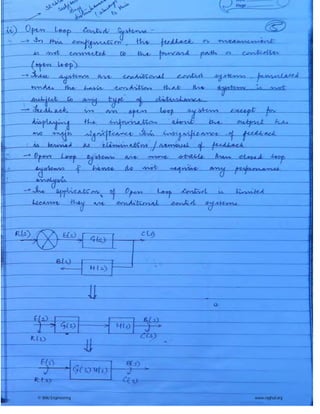 ii) Open Loop Control Systems -
→ In this configuration, the feedback or measurement
is not connected to the forward path or controller
(open loop)
→ These systems are conditional control systems formulated
under the basic condition that the system is not
subject to any type of disturbance.
→ Feedback in an open loop system except for
displaying the information about the output has
no major significance. This insignificance of feedback
is termed as elimination / removal of feedback
→ Open Loop Systems are more stable than closed loop
systems & hence do not require any performance
analysis
→ The application of Open Loop Control is limited
because they are conditional control systems
R(s) E(s) G(s) C(s)
B(s) H(s)
E(s) G(s) H(s) B(s)
R(s) C(s)
E(s) G(s) H(s) B(s)
R(s) C(s)